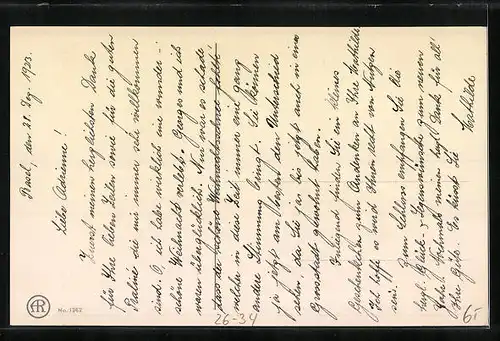 Basel, den 28. Dez. 1933.
Liebe Adrienne!
Zuerst meinen herzlichsten Dank
für Ihre lieben Zeilen sowie für die guten
Praliné die mir immer sehr willkommen
sind. O, ich habe wirklich eine wunder-
schöne Weihnacht verlebt, Ganges und ich
waren überglücklich. Nur war es schade
dass der schöne Weihnachts
welcher in diese Zeit immer eine ganz
andere Stimmung bringt. Sie können
ja jetzt am besten den Unterschied
sehen, da Sie ja bis jetzt auch in einer
Grosstadt gewohnt haben.
Inliegend finden Sie ein kleines
Geschenklein zum Andenken an Ihre Mathilde
Ich hoffe es wird Ihnen stets von Nutzen
sein.
Zum Schluss empfangen Sie die
herzl. Glück- & Segenswünsche zum neuen
Jahre. Nochmals meinen herzl. Dank für all'
Ihre Güte. Es küsst Sie
Mathilde
26-34
6.-
AR
No. 1262